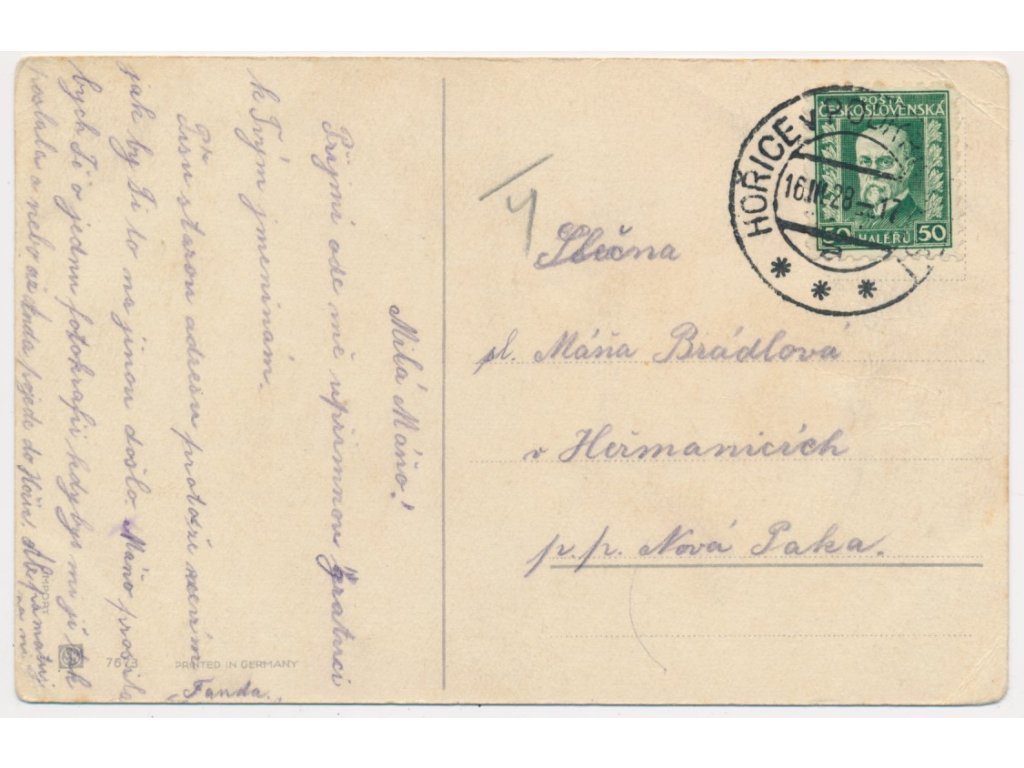 Milá Máňo!
Přijmi ode mě upřímnou gratulaci
k Tvým jmeninám.
Píši starou adresu protože nevím
jak by Ti to na jinou došlo. Máňo prosila
bych Tě o jednu fotokrafii kdybys mi ji tak
poslala a nebo až Anda pojede do Hořic.
Fanda.
IMPORT
7673
PRINTED IN GERMANY
Slečna
sl. Máňa Brádlová
v Heřmanicích
p. p. Nová Paka.
POŠTA
ČESKOSLOVENSKÁ
50 HALÉŘŮ 50
HOŘICE v
16.III.28